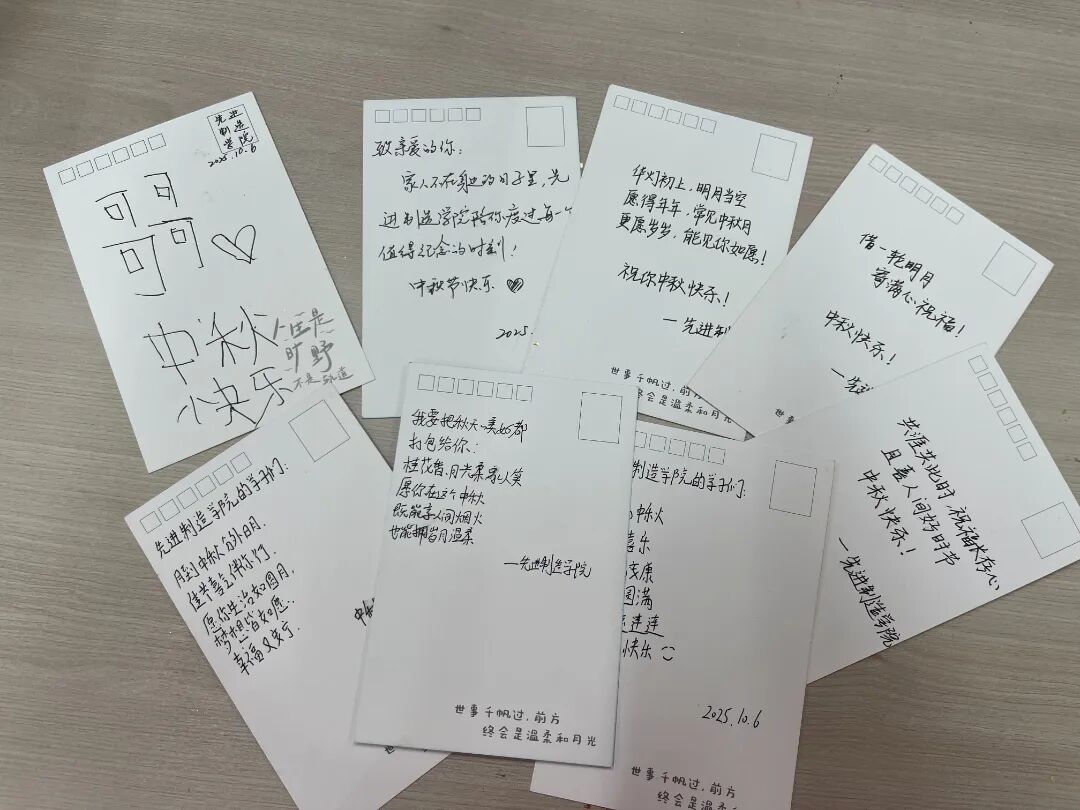 先进
制造
学院
2025.10.6
可可
可可
中秋
快乐
人生是
旷野
不是轨道
致亲爱的你:
家人不在身边的日子里,先
进制造学院陪你度过每一个
值得纪念的时刻!
中秋节快乐
2025.
华灯初上,明月当空
愿得年年,常见中秋月
更愿岁岁,能见你如愿!
祝你中秋快乐!
一先进制
世事千帆过,前方
终会是温柔和月光
借一轮明月
寄满心祝福!
中秋快乐!
一先进
世事
先进制造学院的学子们:
月到中秋分外明.
佳节喜气伴你行
愿你生活如圆月
梦想皆如愿
幸福又安宁.
中秋
世事
我要把秋天美好都
打包给你:
桂花香.月光柔家人笑
愿你在这个中秋
既能享人间烟火
也能拥岁月温柔
一先进制造学院
世事千帆过,前方
终会是温柔和月光
制造学院的学子们:
中秋
喜乐
安康
圆满
连连
快乐
2025.10.6
世事千帆过,前方
终会是温柔和月光
共涯共此时,祝福永存心
且喜人间好时节
中秋快乐!
一先进制造学院